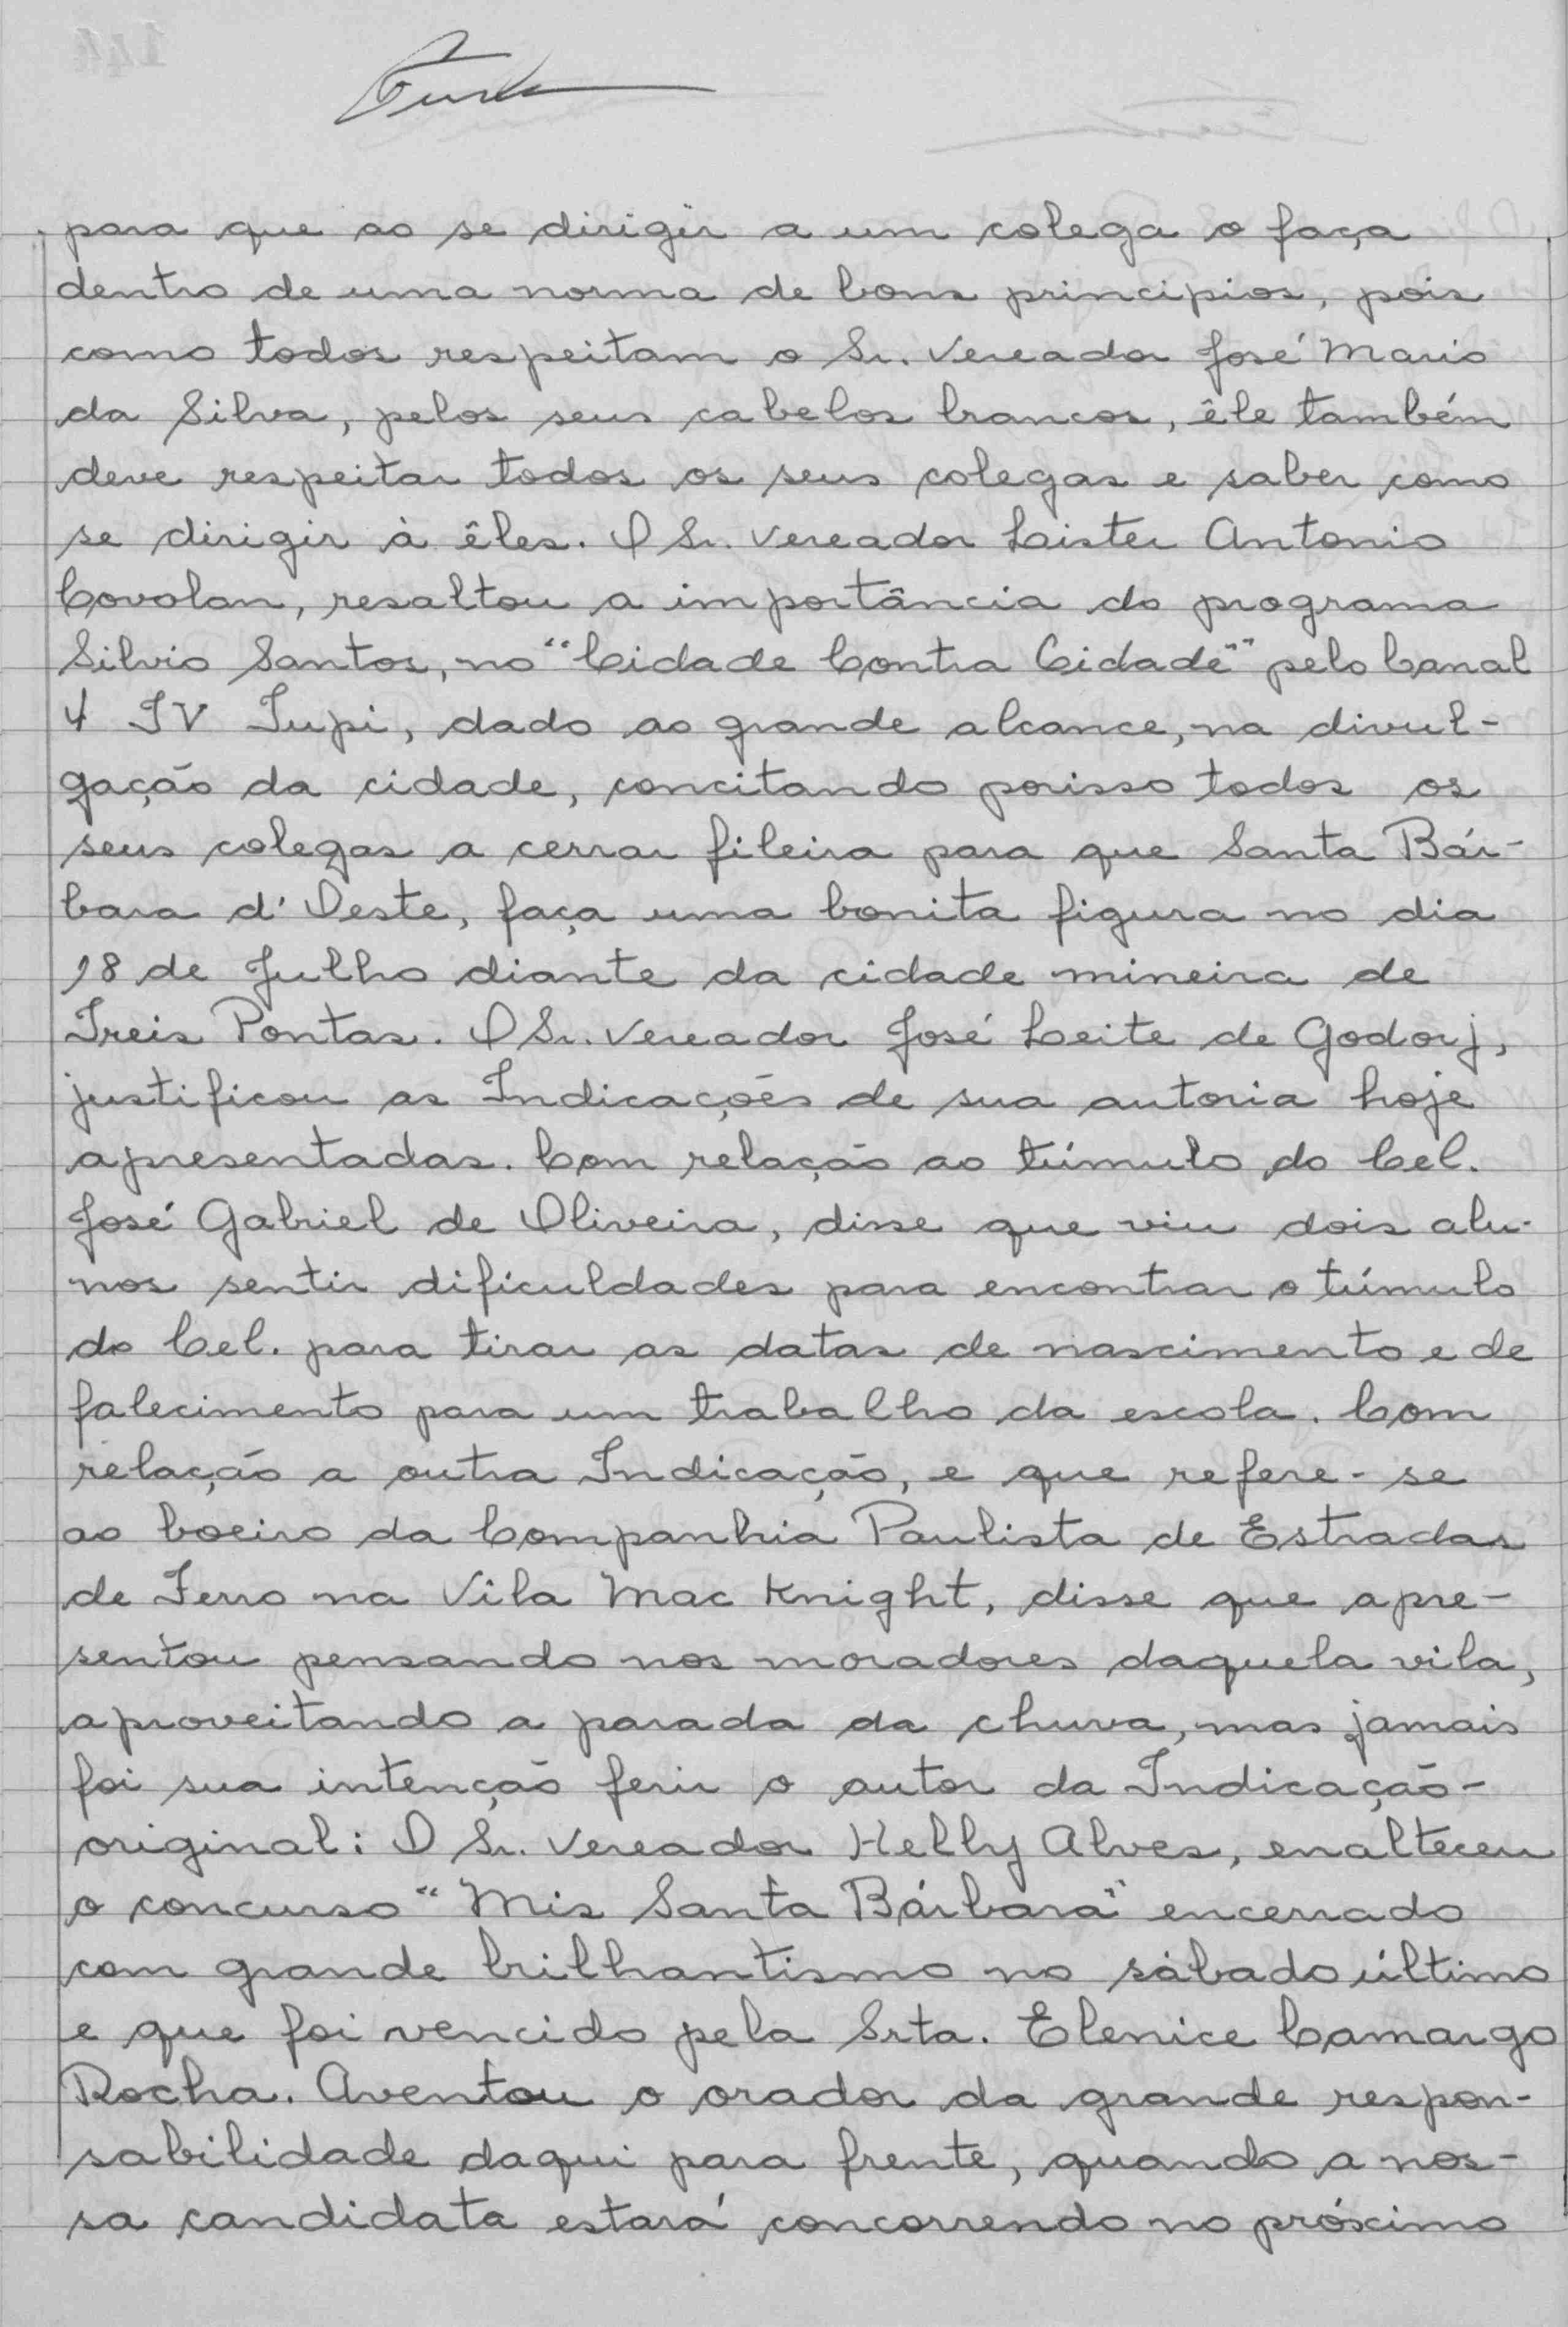 para que ao se dirigir a um colega o faça
dentro de uma norma de bons principios, pois
como todos respeitam o Sr. Vereador José Mario
da Silva, pelos seus cabelos brancos, êle também
deve respeitar todos os seus colegas e saber como
se dirigir à êles. O Sr. Vereador Lister Antonio
Covolan, resaltou a importância do programa
Silvio Santos, no "Cidade Contra Cidade" pelo Canal
4 TV Tupi, dado ao grande alcance, na divul-
gação da cidade, concitando porisso todos os
seus colegas a cerrar fileira para que Santa Bár-
bara d'Oeste, faça uma bonita figura no dia
18 de Julho diante da cidade mineira de
Treis Pontas. O Sr. Vereador José Leite de Godoij,
justificou as Indicações de sua autoria hoje
apresentadas. Com relação ao túmulo do Cel.
José Gabriel de Oliveira, disse que viu dois alu-
nos sentir dificuldades para encontrar o túmulo
do Cel. para tirar as datas de nascimento e de
falecimento para um trabalho da escola. Com
relação a outra Indicação, e que refere-se
ao boeiro da Companhia Paulista de Estradas
de Ferro na Vila Mac Knight, disse que apre-
sentou pensando nos moradores daquela vila,
aproveitando a parada da chuva, mas jamais
foi sua intenção ferir o autor da Indicação-
original: O Sr. Vereador Helly Alves, enalteceu
o concurso "Mis Santa Bárbara" encerrado
com grande brilhantismo no sábado último
e que foi vencido pela Srta. Elenice Camargo
Rocha. Aventou o orador da grande respon-
sabilidade daqui para frente, quando a nos-
sa candidata estará concorrendo no próximo